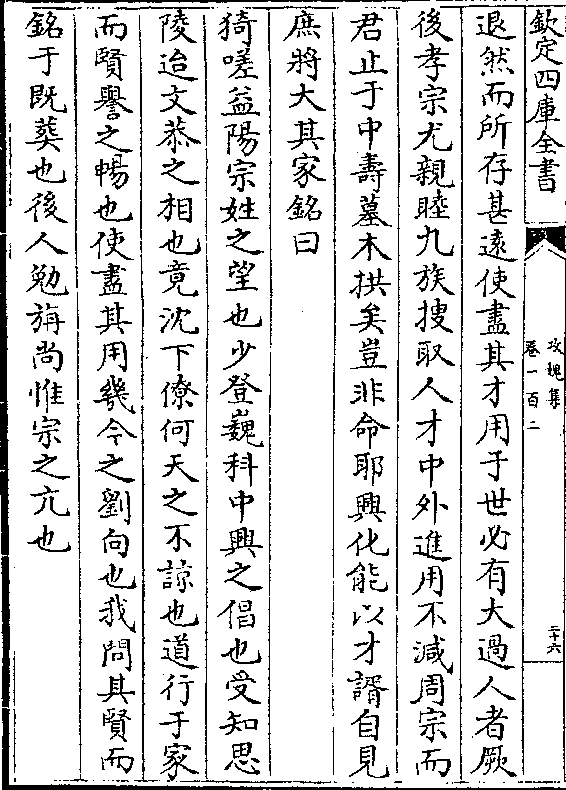 欽定四庫全書
攻媿集
卷一百二
二十六
退然而所存甚遠使盡其才用于世必有大過人者厥
後孝宗尤親睦九族搜取人才中外進用不減周宗而
君止于中壽墓木拱矣豈非命耶興化能以才諝自見
庶將大其家銘曰
猗嗟益陽宗姓之望也少登巍科中興之倡也受知思
陵迨文恭之相也竟沈下僚何天之不諒也道行于家
而賢譽之暢也使盡其用幾今之劉向也我問其賢而
銘于既葬也後人勉旃尚惟宗之亢也